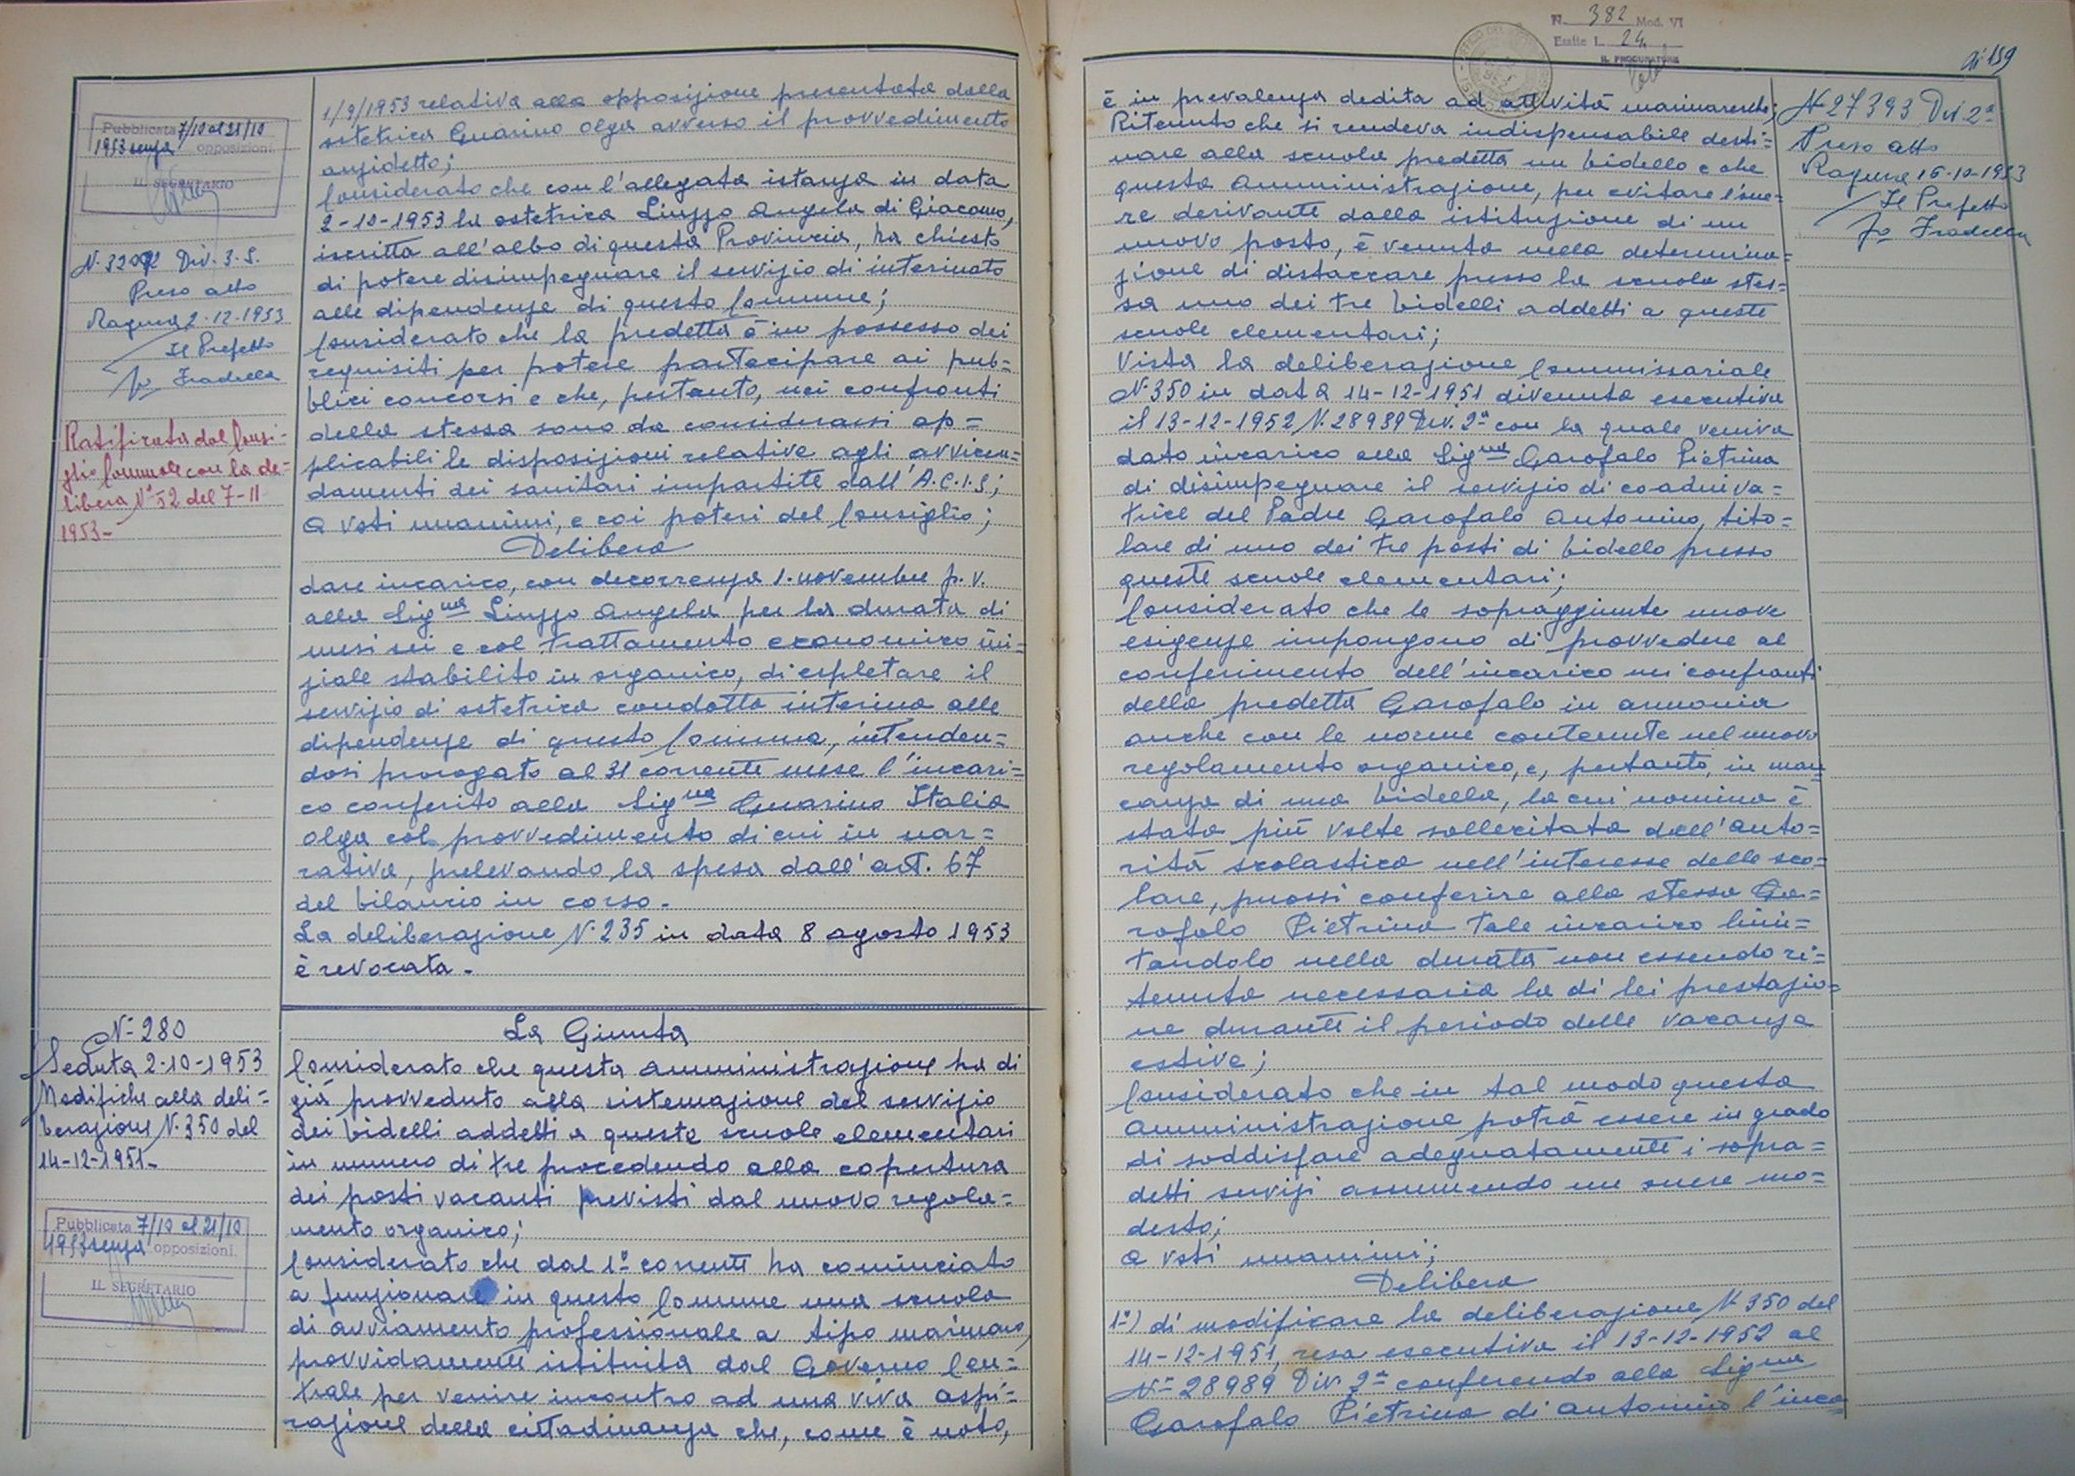 Pubblicata 7/10 al 21/10
1953 senza opposizioni.
IL SEGRETARIO
Div. 3. S.
Preso atto
Ragusa 2-12-1953
Il Prefetto
Fo Fradella
Ratificata dal Consi-
glio Comunale con la de-
libera N° 52 del 7-11
1953-
1/9/1953 relativa alla opposizione presentata dalla
ostetrica Guarino Olga avverso il provvedimento
anzidetto;
Considerato che con l'allegata istanza in data
2-10-1953 la ostetrica Liuzzo Angela di Giacomo,
iscritta all'albo di questa Provincia, ha chiesto
di potere disimpegnare il servizio di interinato
alle dipendenze di questo Comune;
Considerato che la predetta è in possesso dei
requisiti per potere partecipare ai pub=
blici concorsi e che, pertanto, nei confronti
della stessa sono da considerarsi ap=
plicabili le disposizioni relative agli avvicen=
damenti dei sanitari impartite dall'A.C.I.S;
a voti unanimi, e coi poteri del Consiglio;
Delibera
dare incarico, con decorrenza 1. novembre p.v.
alla Sig.na Liuzzo Angela per la durata di
mesi sei e col trattamento economico ini=
ziale stabilito in organico, di espletare il
servizio di ostetrica condotta interina alle
dipendenze di questo Comune, intenden=
dosi prorogato al 31 corrente mese l'incari=
co conferito alla Sig.na Guarino Italia
Olga col provvedimento di cui in nar=
rativa, prelevando la spesa dall'art. 67
del bilancio in corso.
La deliberazione N. 235 in data 8 agosto 1953
è revocata.
N= 280
Seduta 2-10-1953
Modifiche alla deli=
berazione N. 350 del
14-12-1951-
Pubblicata 7/10 al 21/10
1953 senza opposizioni.
IL SEGRETARIO
La Giunta
Considerato che questa Amministrazione ha di
già provveduto alla sistemazione del servizio
dei bidelli addetti a queste scuole elementari
in numero di tre procedendo alla copertura
dei posti vacanti previsti dal nuovo regola=
mento organico;
Considerato che dal 1° corrente ha cominciato
a funzionare in questo Comune una scuola
di avviamento professionale a tipo marinaro,
provvidamente istituita dal Governo Cen=
trale per venire incontro ad una viva aspi=
razione della cittadinanza che, come è noto,
N. 382 Mod. VI
Esatte L. 24
IL PROCURATORE
159
è in prevalenza dedita ad attività marinaresche;
Ritenuto che si rendeva indispensabile desti=
nare alla scuola predetta un bidello e che
questa Amministrazione, per evitare l'one=
re derivante dalla istituzione di un
nuovo posto, è venuta nella determina=
zione di distaccare presso la scuola stes=
sa uno dei tre bidelli addetti a queste
scuole elementari;
Vista la deliberazione Commissariale
N. 350 in data 14-12-1951 divenuta esecutiva
il 13-12-1952 N. 28989 Div. 2ª con la quale veniva
dato incarico alla Sig.na Garofalo Pietrina
di disimpegnare il servizio di coadiuva=
trice del Padre Garofalo Antonino, tito=
lare di uno dei tre posti di bidello presso
queste scuole elementari;
Considerato che le sopraggiunte nuove
esigenze impongono di provvedere al
conferimento dell'incarico nei confronti
della predetta Garofalo in armonia
anche con le norme contenute nel nuovo
regolamento organico, e, pertanto, in man
canza di una bidella, la cui nomina è
stata più volte sollecitata dall'auto=
rità scolastica nell'interesse delle sco=
lare, puossi conferire alla stessa Ga=
rofalo Pietrina tale incarico limi=
tandolo nella durata non essendo ri=
tenuta necessaria la di lei prestazio=
ne durante il periodo delle vacanze
estive;
Considerato che in tal modo questa
Amministrazione potrà essere in grado
di soddisfare adeguatamente i sopra=
detti servizi assumendo un onere mo=
desto;
a voti unanimi;
Delibera
1°) di modificare la deliberazione N. 350 del
14-12-1951, resa esecutiva il 13-12-1952 al
N= 28989 Div. 2ª conferendo alla Sig.na
Garofalo Pietrina di Antonino l'inca
N= 27393 Div. 2ª
Preso atto
Ragusa 16-10-1953
Il Prefetto
Fo Fradella